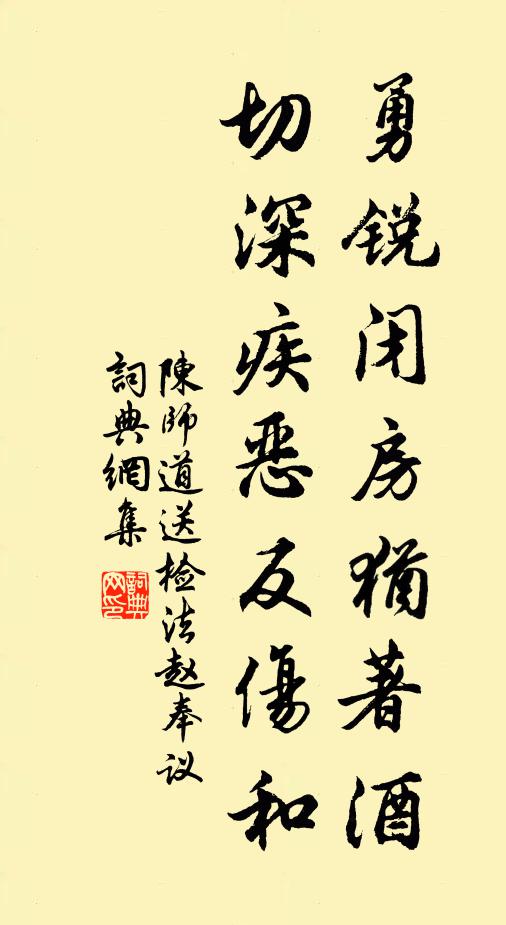 勇锐闭房犹著酒
切深疾恶反傷和
陳师道送检法赵奉议
詞典網集
詞典网印